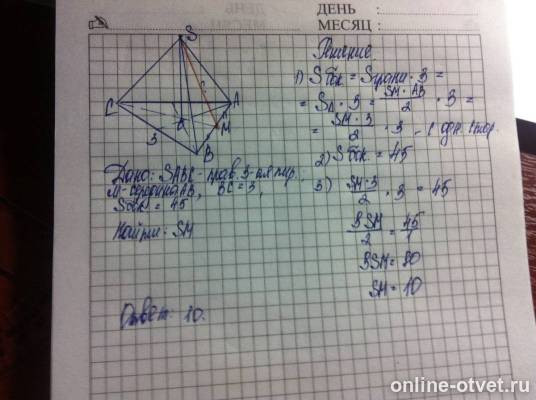 ДЕНЬ :
МЕСЯЦ :
S
C
A
O
M
B
3
Решение
1) Sбок = Sграни · 3 =
= SΔ · 3 = SM · AB / 2 · 3 =
= SM · 3 / 2 · 3 - с одн. стор.
2) Sбок = 45
3) SM·3 / 2 · 3 = 45
9SM / 2 = 45 / 1
9SM = 90
SM = 10
Дано: SABC - прав. 3-ая пир.
M - середина AB, BC = 3,
Sбок = 45
Найти: SM
Ответ: 10.
online-otvet.ru